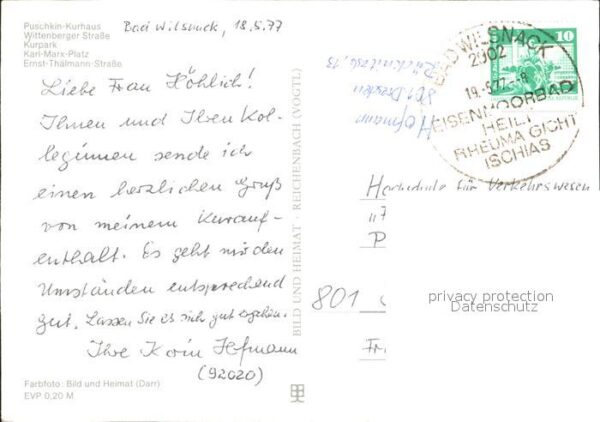 Puschkin-Kurhaus
Wittenberger Straße
Kurpark
Karl-Marx-Platz
Ernst-Thälmann-Straße
Bad Wilsnack, 18.5.77
Liebe Frau Höhlich!
Ihnen und Ihren Kol-
leginnen sende ich
einen herzlichen Gruß
von meinem Kurauf-
enthalt. Es geht mir den
Umständen entsprechend
gut. Lassen Sie es sich gut ergehen.
Ihre Karin Hofmann
(92020)
Farbfoto: Bild und Heimat (Darr)
EVP 0,20 M
BILD UND HEIMAT · REICHENBACH (VOGTL)
Hofmann
801 Dresden
13
BAD WILSNACK
2902
19.5.77.-8
EISENMOORBAD
HEILT
RHEUMA GICHT
ISCHIAS
10
Hochschule für Verkehrswesen
801
privacy protection
Datenschutz